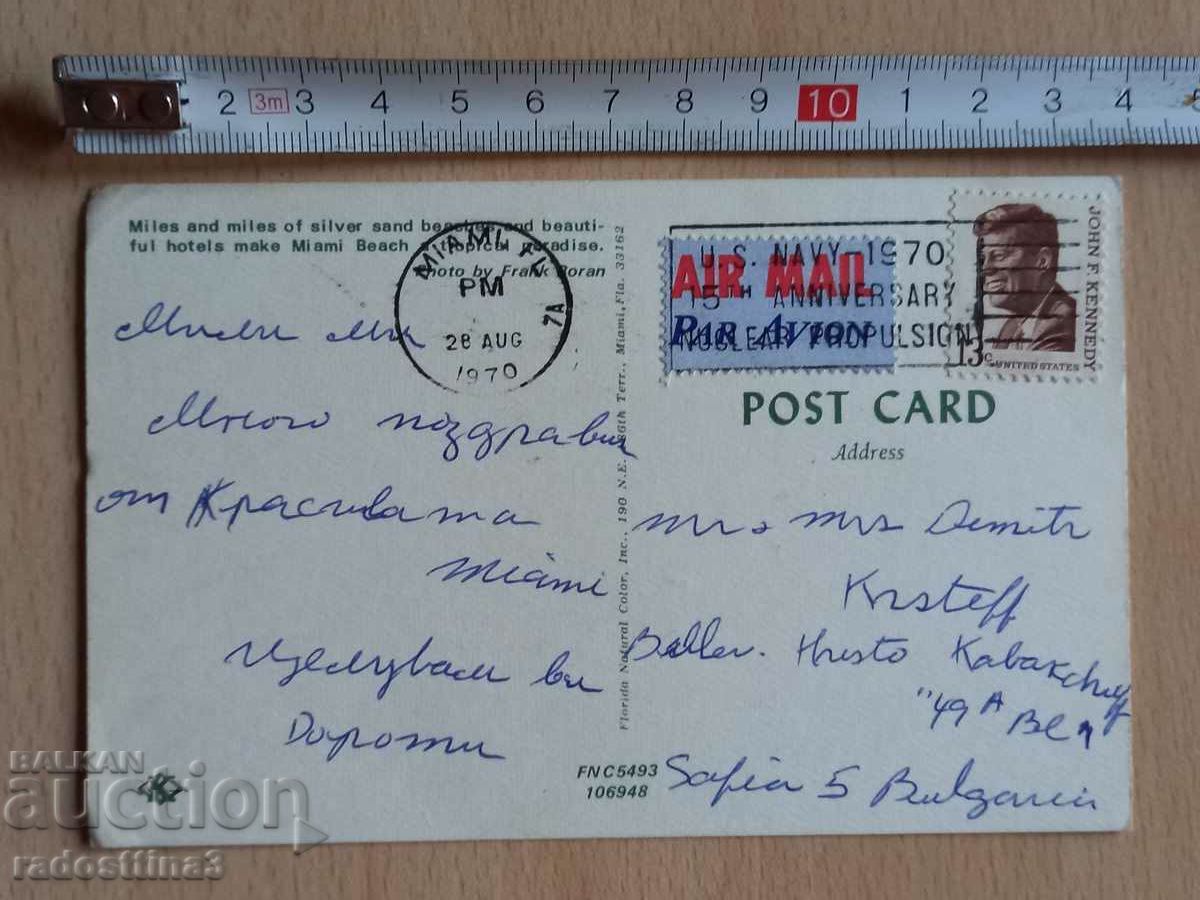 2 3m 3 4 5 6 7 8 9 10 1 2 3 4 5
Miles and miles of silver sand beaches and beauti-
ful hotels make Miami Beach a tropical paradise.
Photo by Frank Boran
MIAMI, FL
PM
28 AUG
1970
7A
U.S. NAVY-1970
15TH ANNIVERSARY
NUCLEAR PROPULSION
AIR MAIL
PAR AVION
JOHN F. KENNEDY
13c UNITED STATES
POST CARD
Address
Мили ми
Много поздрави
от Красивата
Miami
Целувам ви
Дороти
Florida Natural Color, Inc., 190 N.E. 186th Terr., Miami, Fla. 33162
Mr & Mrs Demitr
Krsteff
Hristo Kabakchieff
49 A
Sofia 5 Bulgaria
FNC5493
106948
BALKAN
auction
radosttina3